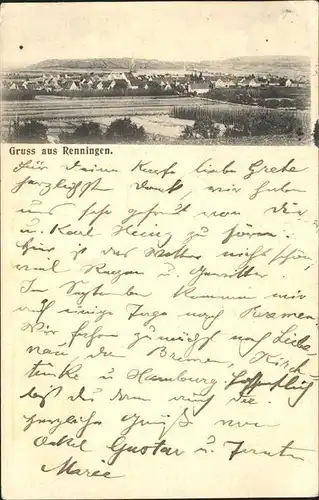 Gruss aus Renningen.
Für Deine Karte, liebe Grete
herzlichsten Dank, wir haben
uns sehr gefreut von Dir
u. Karl Heinz zu hören.
Hier ist das Wetter nicht schön,
viel Regen u. Gewitter.
Im September kommen wir
auf einige Tage nach
Wir fahren zunächst nach
den Bremen,
u. Hamburg hoffentlich
bist du dann auch da.
herzliche Grüße von
Onkel Gustav u. Tante
Marie